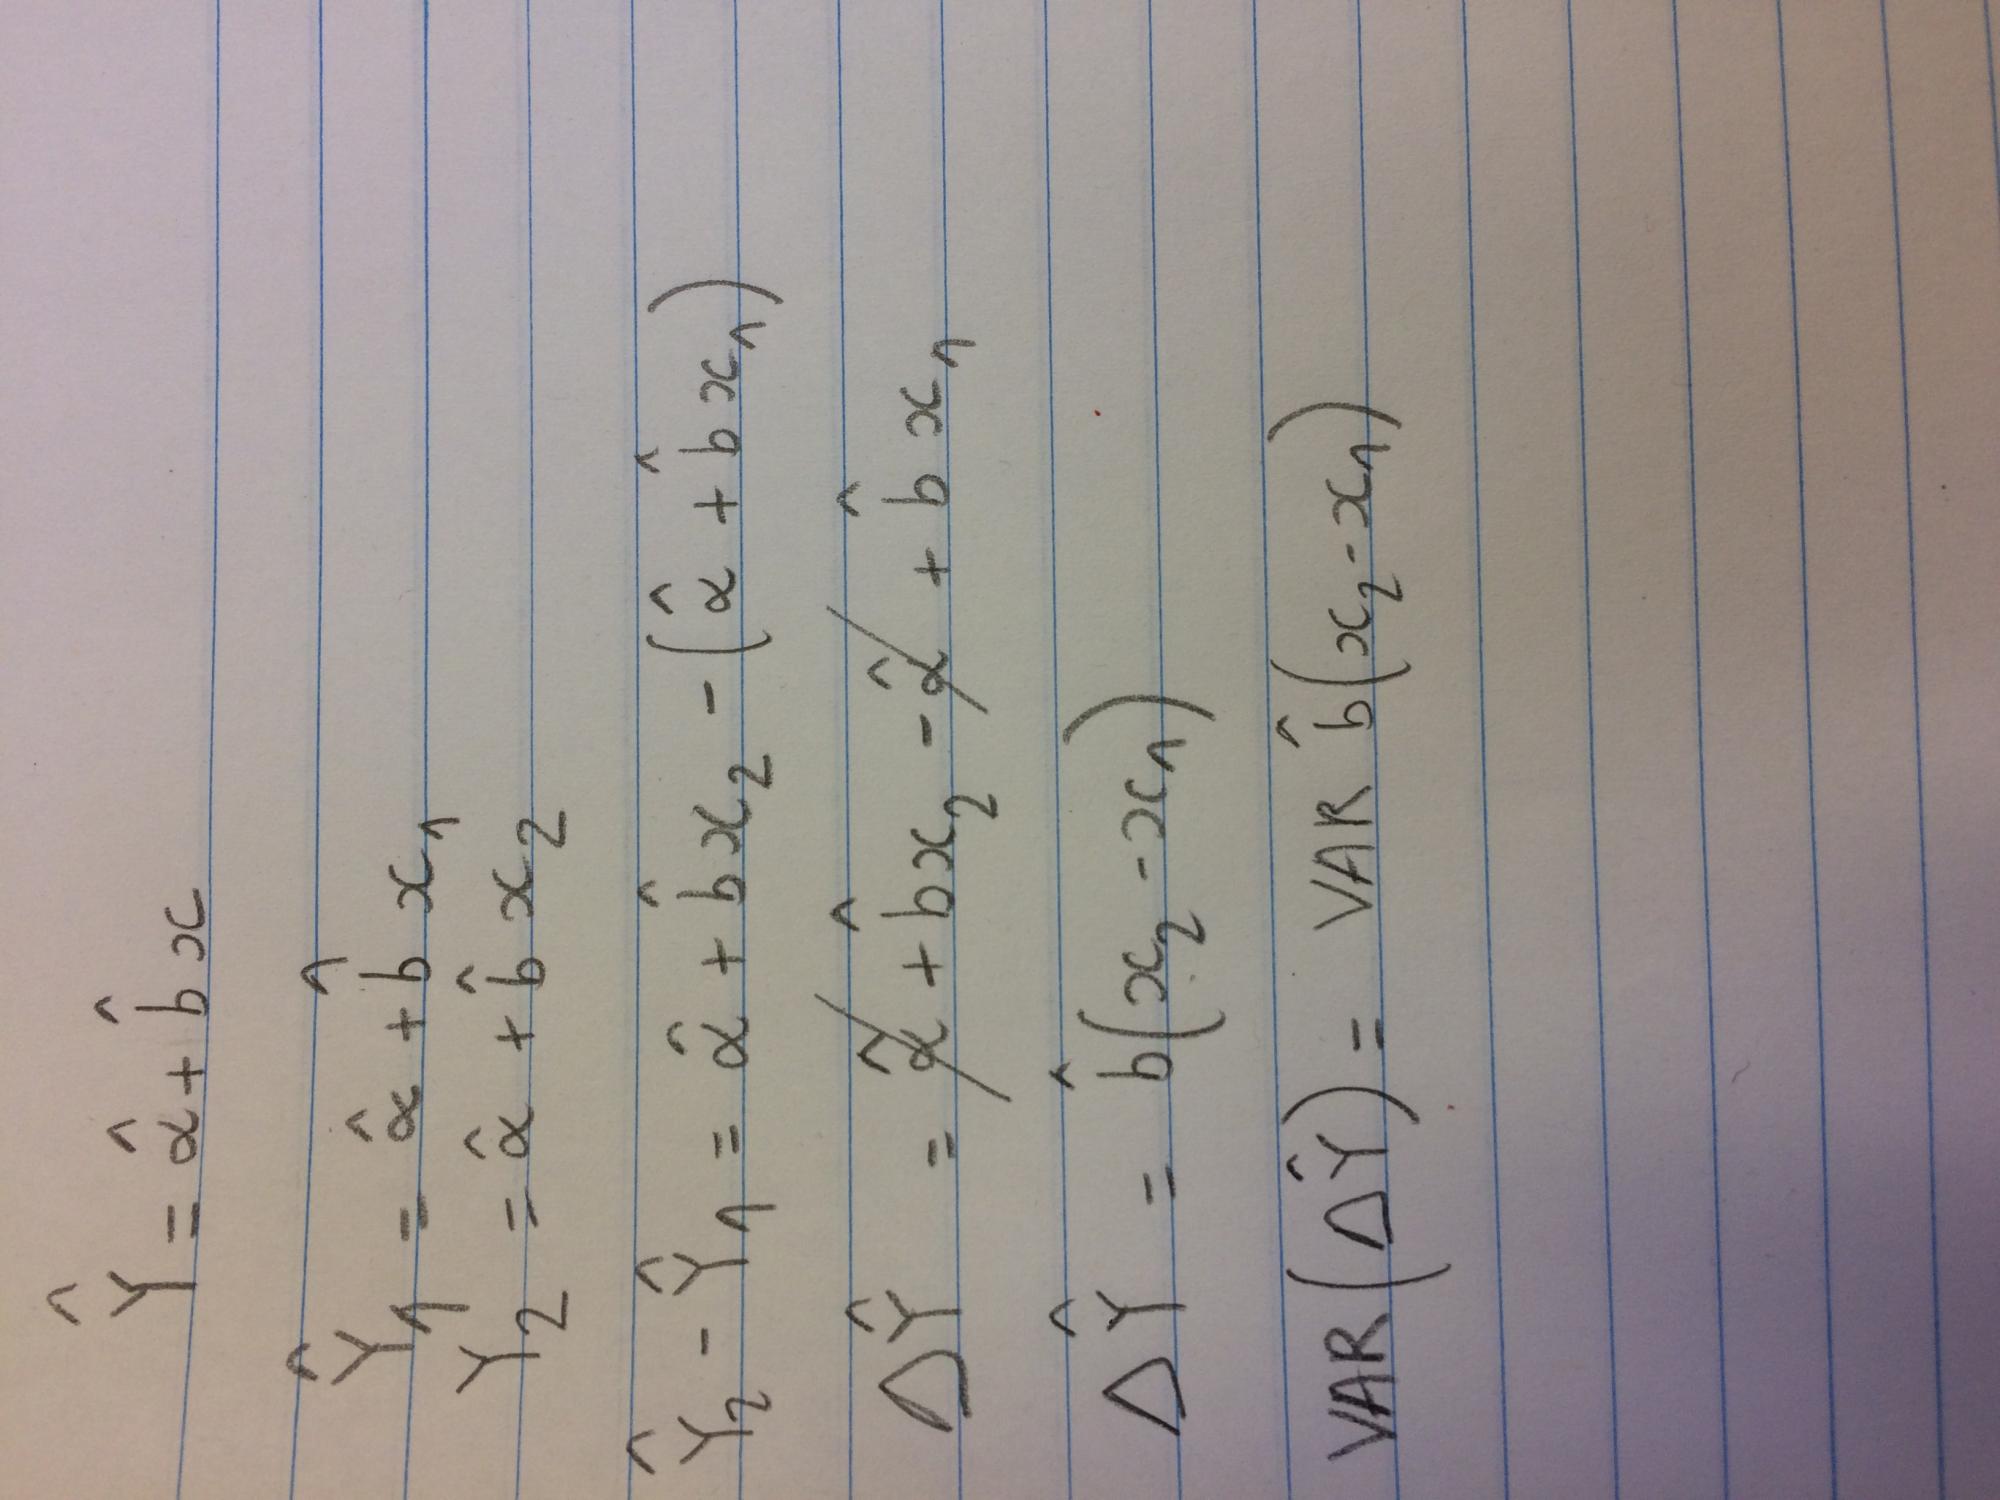 Ŷ = α̂ + b̂x
Ŷ₁ = α̂ + b̂x₁
Y₂ = α̂ + b̂x₂
Ŷ₂ - Ŷ₁ = α̂ + b̂x₂ - (α̂ + b̂x₁)
ΔŶ = α̂ + b̂x₂ - α̂ + b̂x₁
ΔŶ = b̂(x₂ - x₁)
VAR(ΔŶ) = VAR b̂(x₂ - x₁)